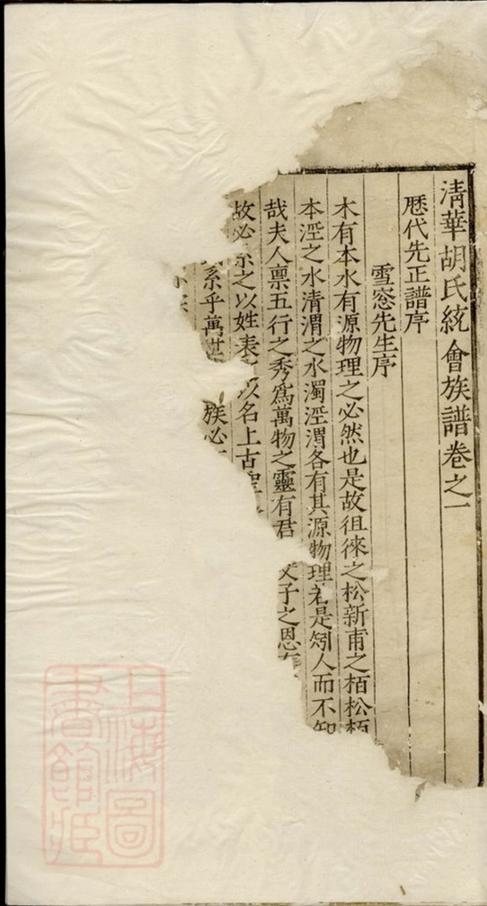 清華胡氏統會族譜卷之一
歷代先正譜序
雪窓先生序
木有本水有源物理之必然也是故徂徠之松新甫之栢松栢
本涇之水清渭之水濁涇渭各有其源物理若是矧人而不知
哉夫人禀五行之秀爲萬物之靈有君 父子之恩
故必系之以姓表 以名上古聖
系乎萬世 族必
宗
上海圖書館藏